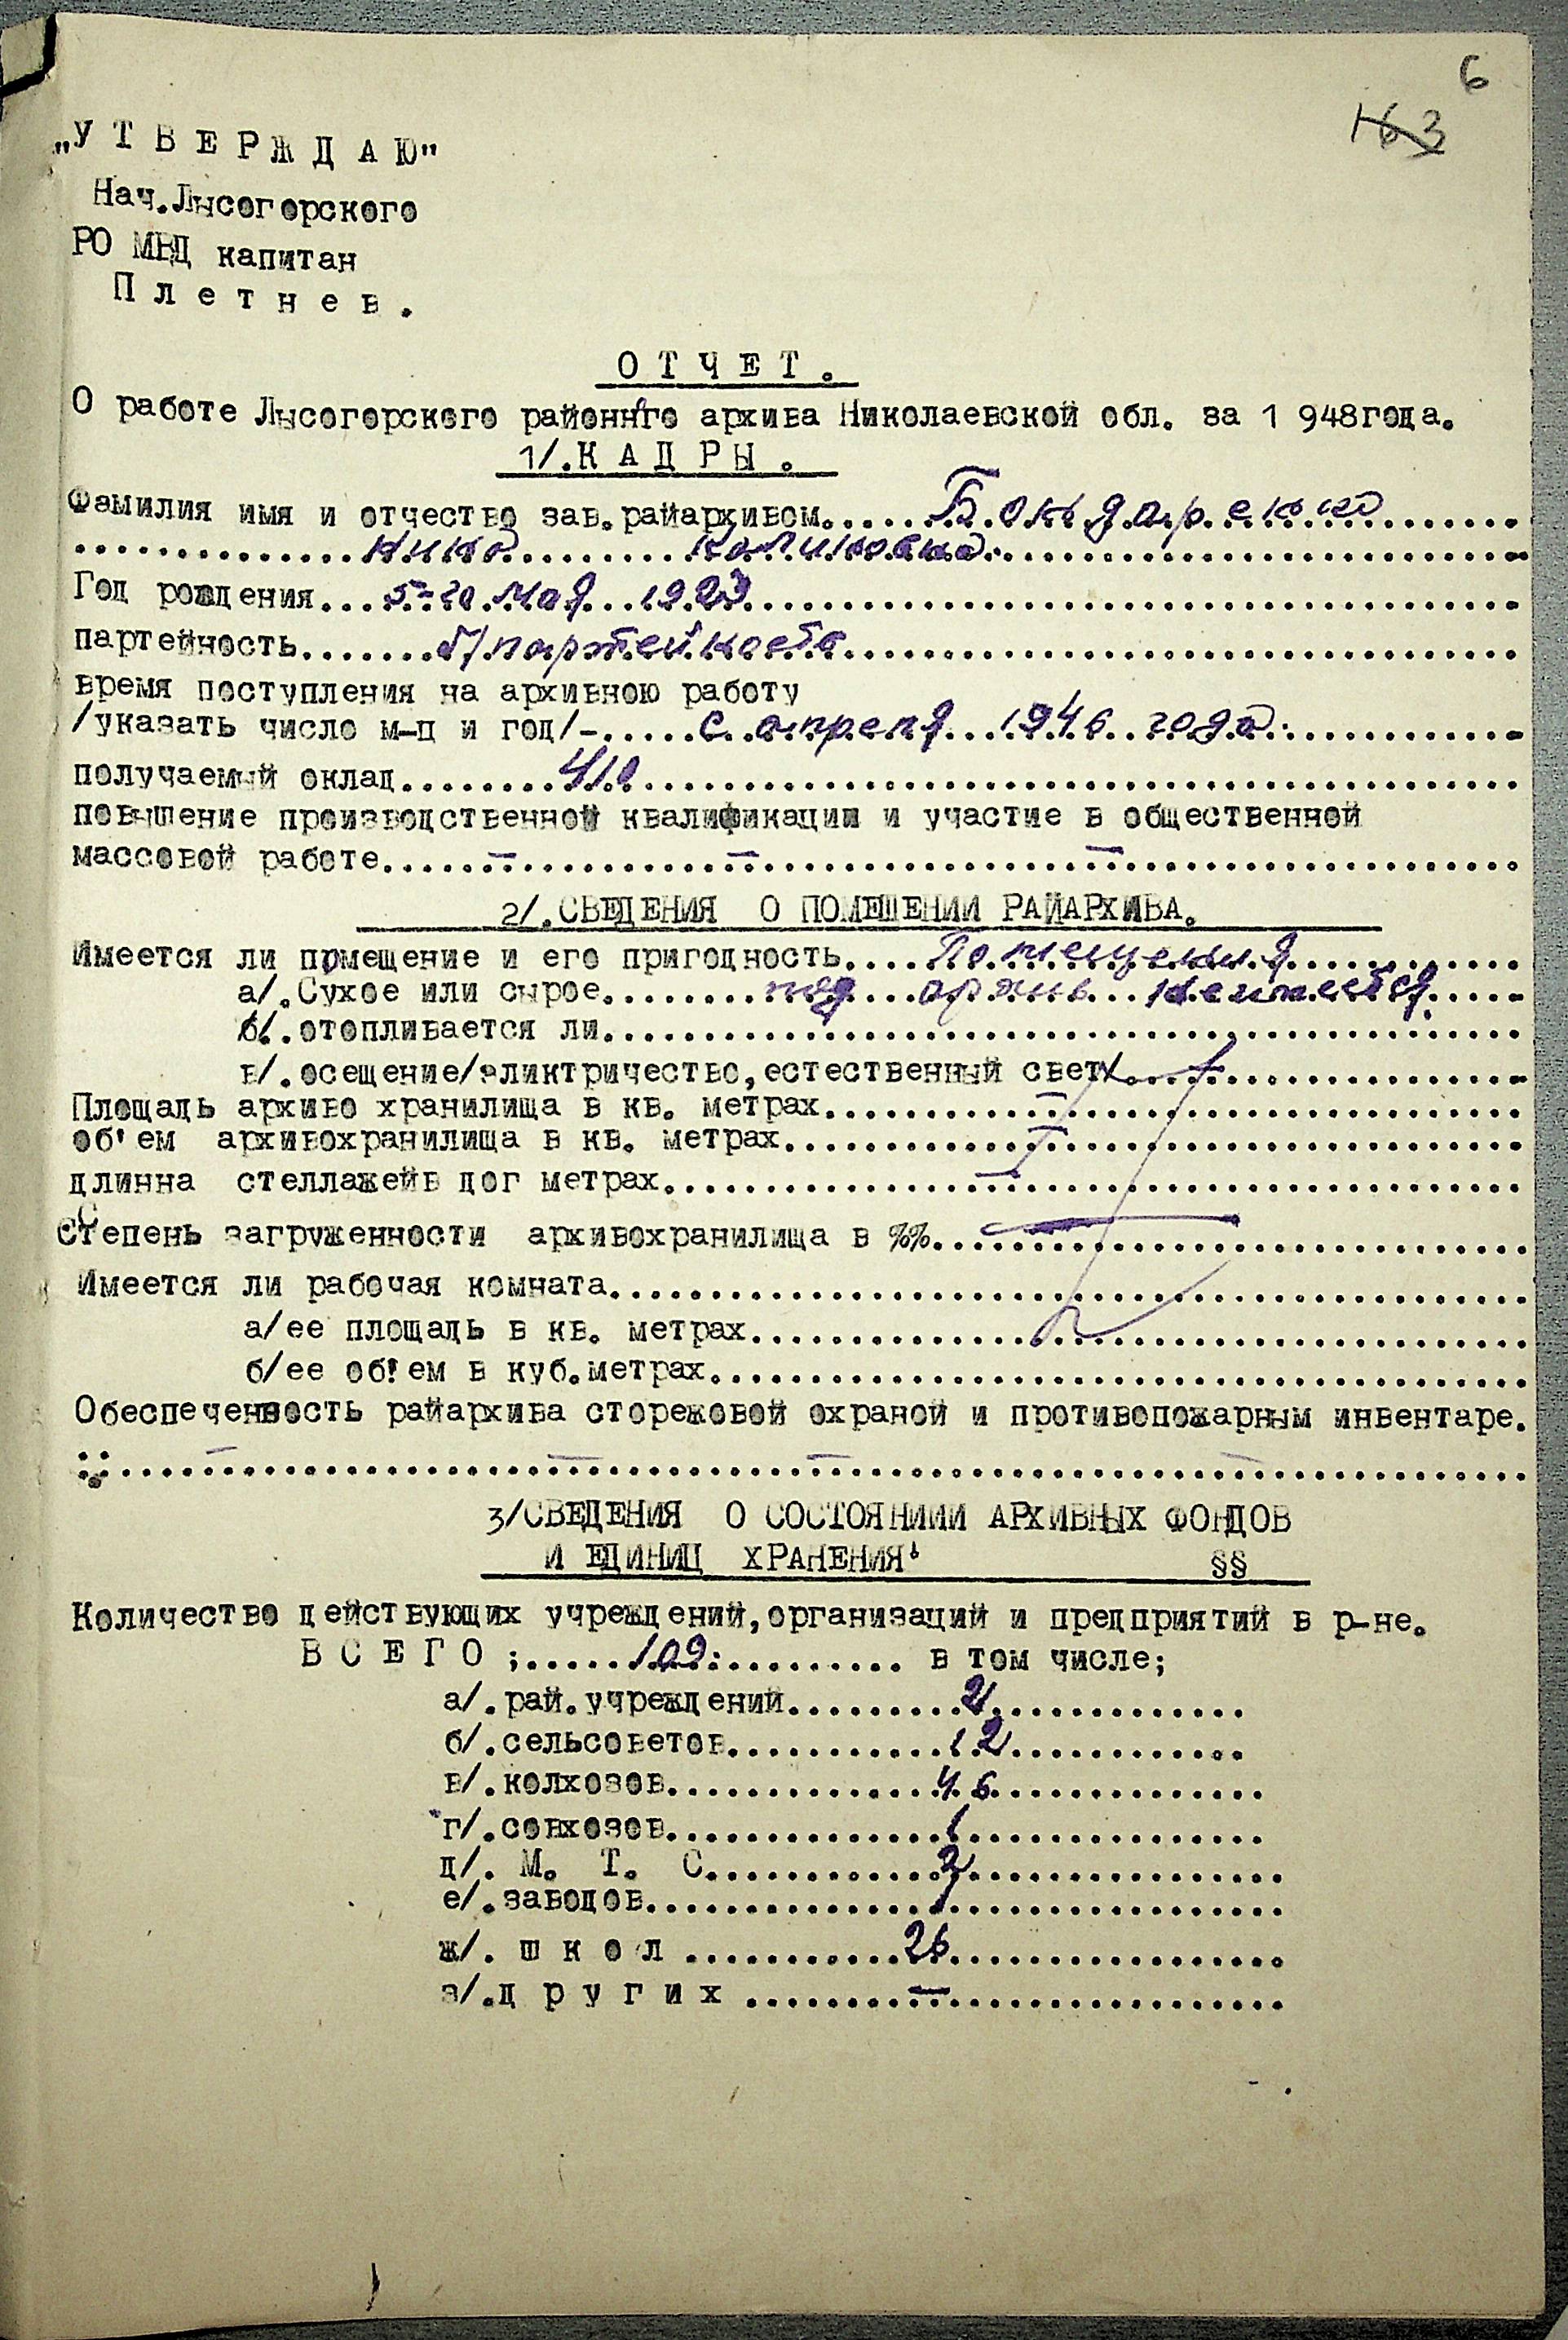 6
163
„УТВЕРЖДАЮ"
Нач.Лысогорского
РО МВД капитан
Плетнев.
ОТЧЕТ.
О работе Лысогорского районнго архива Николаевской обл. за 1 948года.
1/.КАДРЫ.
Фамилия имя и отчество зав.райархивом.....
..............Нина.........
Год рождения...5-го мая 1923
партейность.......б/партейноста
время поступления на архивною работу
/указать число м-ц и год/-.....с апреля 1946 года.
получаемый оклад........410
повышение производственной квалификации и участие в общественной
массовой работе......–......–......–
2/.СВЕДЕНИЯ О ПОМЕЩЕНИИ РАЙАРХИВА.
Имеется ли ппмещение и его пригодность....Помещения
а/.Сухое или сырое........под архив неимеется.
б/.отопливается ли.....
в/.осещение/эликтричество,естественный свет/.....
Площадь архиво хранилища в кв. метрах.....–
об'ем архивохранилища в кв. метрах.....–
длинна стеллажейв пог метрах.....–
Степень загруженности архивохранилища в %%.....–
Имеется ли рабочая комната.....
а/ее площадь в кв. метрах.....
б/ее об'ем в куб.метрах.....
Обеспеченность райархива сторежовой охраной и противопожарным инвентаре.
.....–.....–.....–.....–
3/СВЕДЕНИЯ О СОСТОЯНИИИ АРХИВНЫХ ФОНДОВ
И ЕДИНИЦ ХРАНЕНИЯ' §§
Количество действующих учреждений,организаций и предприятий в р-не.
ВСЕГО ;.....109.......... в том числе;
а/.рай.учреждений.........21
б/.сельсоветов...........12
в/.колхозов.............46
г/.совхозов..............1
д/. М. Т. С............2
е/.заводов..............1
ж/. школ ...........26
з/.других ........–